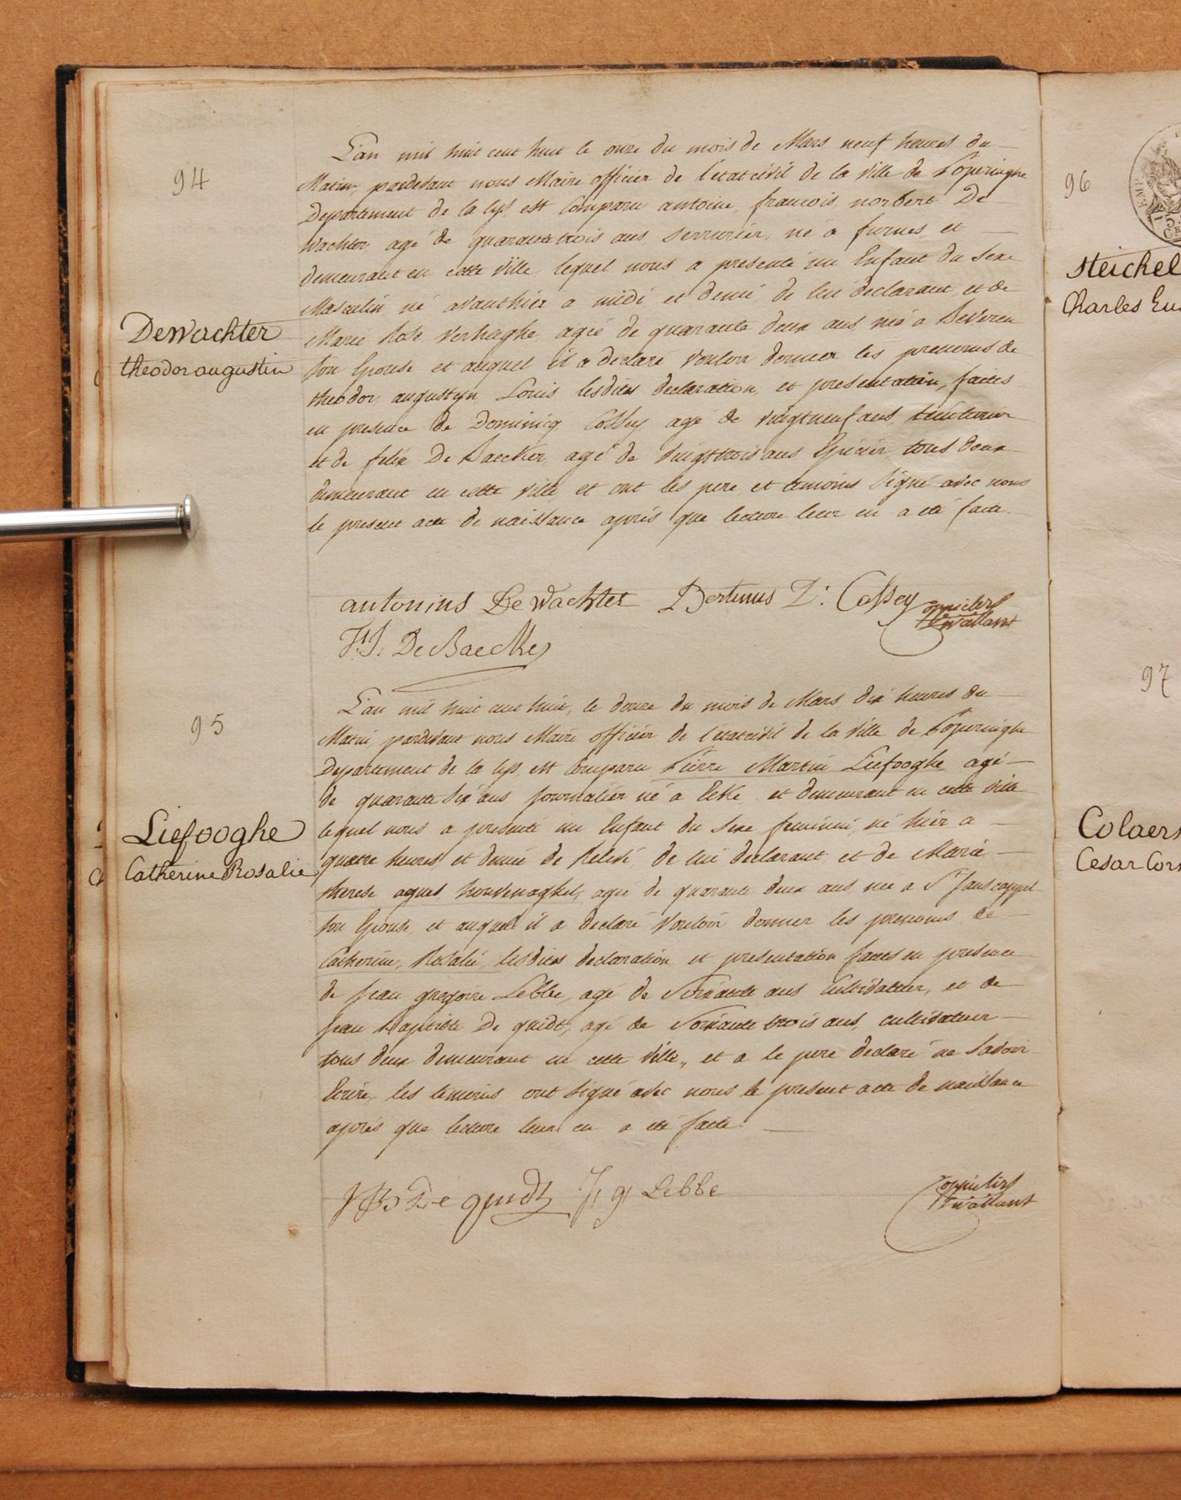 94
DeWachter
theodor augustin
L'an mil huit cent huit le onze du mois de Mars neuf heures du
Matin, pardevant nous Maire officier de l'etat civil de la ville de Poperinghe
Departement de la Lys est Comparu antoine francois norbert De
Wachter agé de quarante trois ans serrurier, né a furnes et
demeurant en cette ville lequel nous a presenté un Enfant du Sexe
Masculin né avanthier a midi et demie de lui declarant et de
Marie Rose Verhaghe agée de quarante deux ans née a Beveren
son Epouse et auquel il a declaré vouloir donner les prenoms de
theodor augustyn Louis lesdites declaration et presentation, faites
en presence de Dominicq Cossey agé de vingtneuf ans teinturier
et de felix De Baecker agé de vingttrois ans Epicier tous deux
demeurant en cette ville et ont les pere et temoins Signé avec nous
le present acte de naissance après que lecture leur en a été faite.
antonius De Wachter D: Cossey
F.J. De Baecker
95
Liefooghe
Catherine Rosalie
L'an mil huit cent huit, le douze du mois de Mars dix heures du
Matin pardevant nous Maire officier de l'etat civil de la ville de Poperinghe
Departement de la Lys est Comparu Pierre Martin Liefooghe agé
de quarante six ans journalier né a Ecke et demeurant en cette ville
lequel nous a presenté un Enfant du Sexe feminin, né hier a
quatre heures et demie de Relevé de lui declarant et de Marie
therese agnes agée de quarante deux ans née a St Jans cappel
son Epouse et auquel il a declaré Vouloir donner les prenoms de
Catherine, Rosalie, lesdites declaration et presentation faites en presence
de jean gregoire Lebbe, agé de Soixante ans Cultivateur, et de
jean Baptiste De quidt, agé de Soixante trois ans, cultivateur
tous deux demeurant en cette Ville, et a le pere declaré ne Savoir
Ecrire, les temoins ont Signé avec nous le present acte de naissance
après que lecture leur en a été faite.
J B De quidt J g Lebbe
96
Steichel
Charles Eu
97
Colaers
Cesar Corn